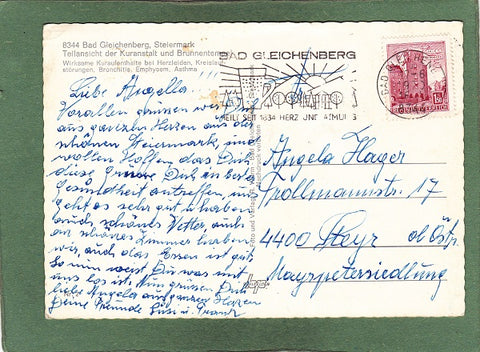 8344 Bad Gleichenberg, Steiermark
Teilansicht der Kuranstalt und Brunnentempel
Wirksame Kuraufenthalte bei Herzleiden, Kreislauf-
störungen, Bronchitis, Emphysem, Asthma
BAD GLEICHENBERG
HEILT SEIT 1834 HERZ UND ATMUNG
Liebe Angela!
Vorallen grüssen wir Dich
aus ganzen Herzen aus der
schönen Steiermark, und
wollen hoffen das Dich
diese Grüsse Dich in bester
Gesundheit antreffen, uns
geht es sehr gut, u. haben
auch schönes Wetter, auch
ein schönes Zimmer haben
wir, auch das Essen ist gut.
So nun weist Du was mit
uns los ist. Nun grüssen Dich
liebe Angela aus ganzen Herzen
Deine Freunde Susi u. Franz
Angela Hager
Trollmannstr. 17
4400 Steyr ob. Östr.
Mayrpetersiedlung